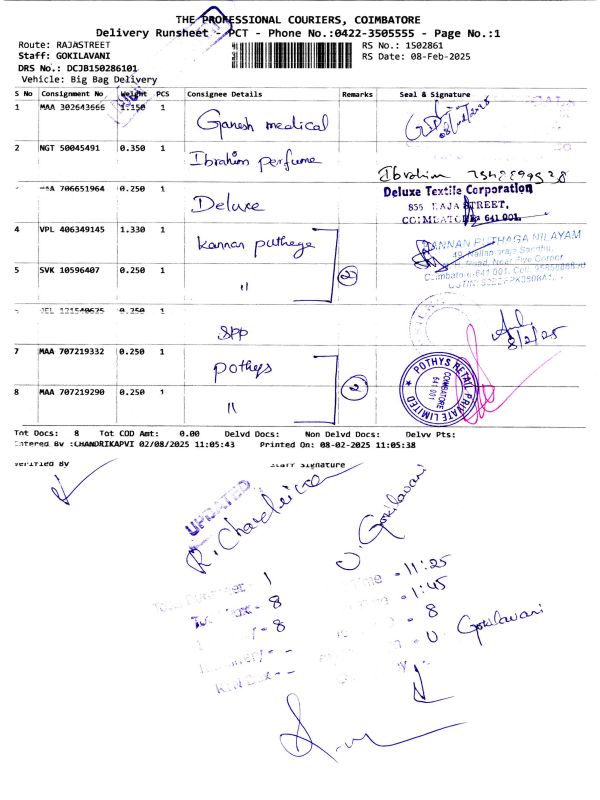 THE PROFESSIONAL COURIERS, COIMBATORE
Delivery Runsheet - PCT - Phone No.:0422-3505555 - Page No.:1
Route: RAJASTREET RS No.: 1502861
Staff: GOKILAVANI RS Date: 08-Feb-2025
DRS No.: DCJB150286101
Vehicle: Big Bag Delivery
S No Consignment No Weight PCS Consignee Details Remarks Seal & Signature
1 MAA 302643666 1.150 1 Ganesh medical 08/02/2025
2 NGT 50045491 0.350 1 Ibrahim perfume
Ibrahim
MAA 706651964 0.250 1 Deluxe
Deluxe Textile Corporation
855 RAJA STREET,
COIMBATORE 641 001.
4 VPL 406349145 1.330 1 Kannan puthaga
KANNAN PUTHAGA NILAYAM
5 SVK 10596407 0.250 1 " 2
Coimbatore-641 001.
0.250 1 SPP
8/2/25
7 MAA 707219332 0.250 1 pothys
POTHYS RETAIL PRIVATE LIMITED
COIMBATORE
641 001
8 MAA 707219290 0.250 1 " 2
Tot Docs: 8 Tot COD Amt: 0.00 Delvd Docs: Non Delvd Docs: Delvv Pts:
Entered By :CHANDRIKAPVI 02/08/2025 11:05:43 Printed On: 08-02-2025 11:05:38
Verified By Staff Signature
UPDATED
R. Chandrika
U. Gokilavani
- 1 Time - 11:25
- 8 - 1:45
- 8 - 8
- - - U. Gokilavani